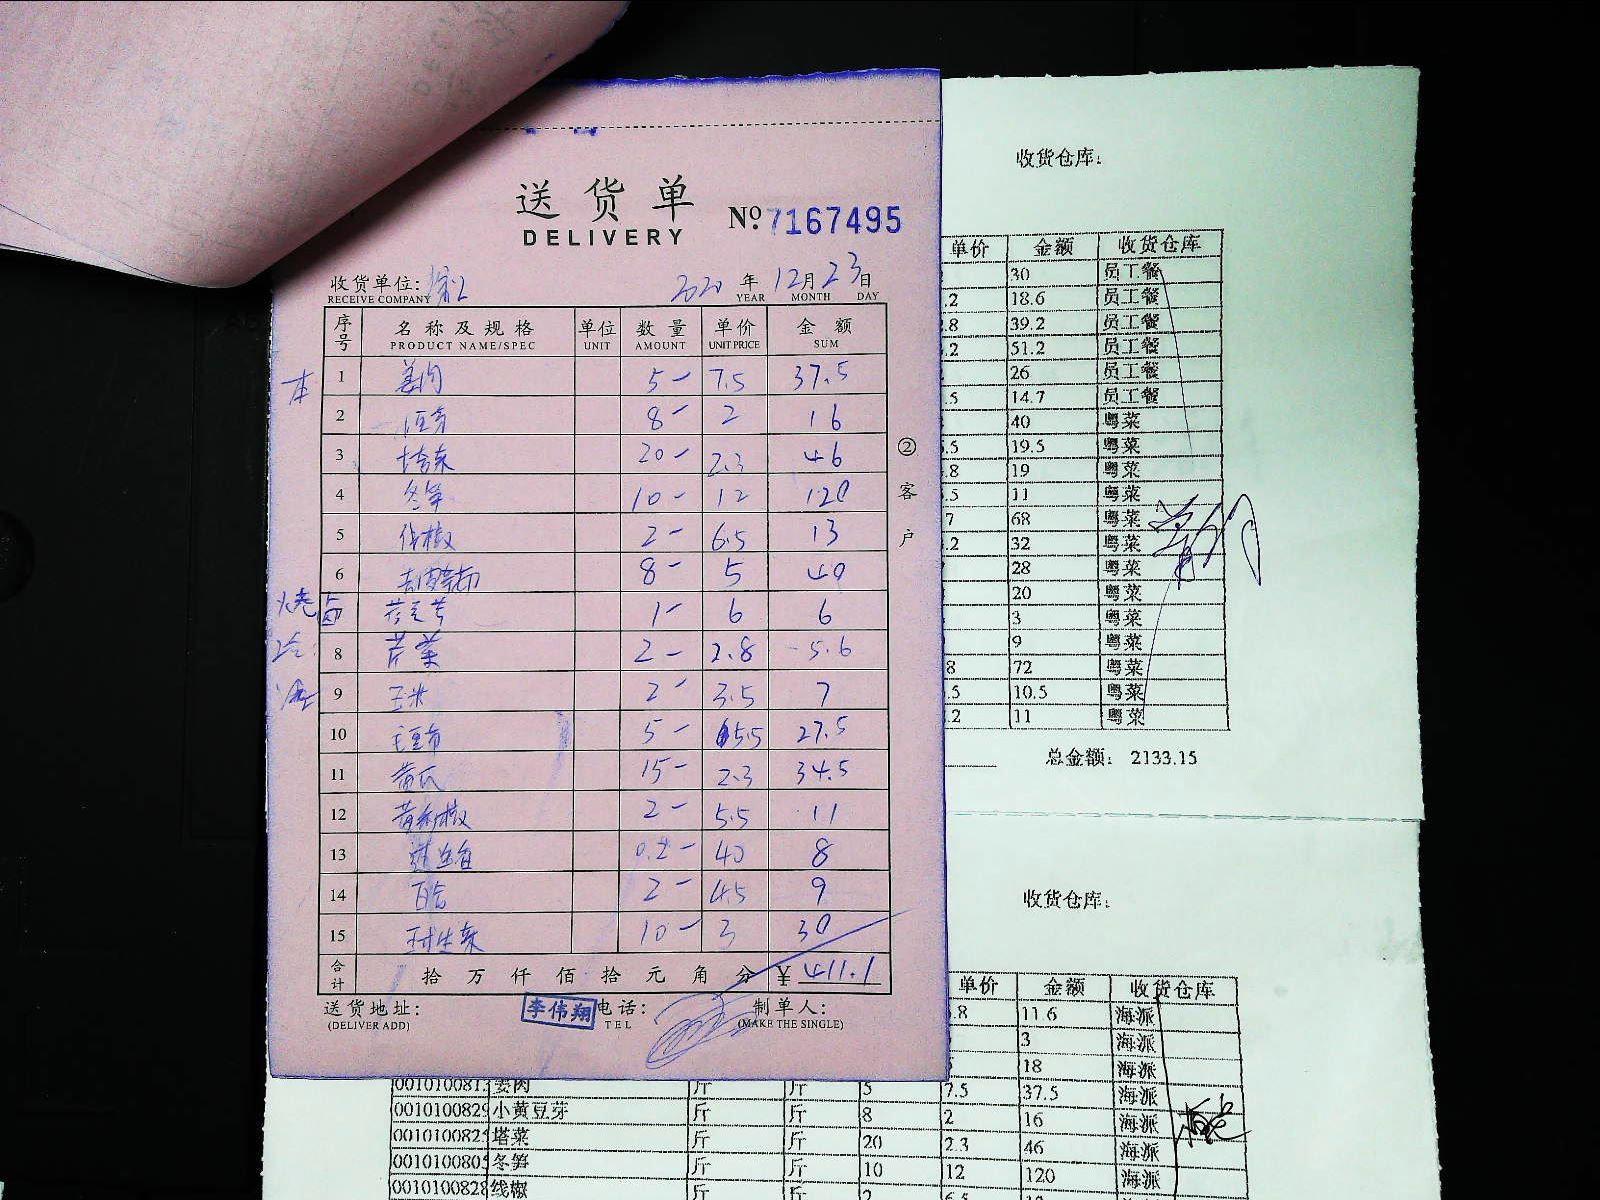 送货单
DELIVERY
№ 7167495
收货单位:
RECEIVE COMPANY
2020 年 12 月 23 日
YEAR MONTH DAY
序号 名称及规格 单位 数量 单价 金额
PRODUCT NAME/SPEC UNIT AMOUNT UNIT PRICE SUM
本
1 姜肉 5- 7.5 37.5
2 8- 2 16
3 塔菜 20- 2.3 46
4 冬笋 10- 12 120
5 线椒 2- 6.5 13
6 8- 5 40
烧卤
1- 6 6
8 芹菜 2- 2.8 5.6
9 玉米 2- 3.5 7
10 5- 5.5 27.5
11 黄瓜 15- 2.3 34.5
12 黄彩椒 2- 5.5 11
13 0.2- 40 8
14 百合 2- 4.5 9
15 球生菜 10- 3 30
合计 拾万仟佰拾元角分 ¥ 411.1
送货地址:
(DELIVER ADD)
李伟翔
电话:
TEL
制单人:
(MAKE THE SINGLE)
②客户
收货仓库:
单价 金额 收货仓库
30 员工餐
.2 18.6 员工餐
.8 39.2 员工餐
.2 51.2 员工餐
26 员工餐
.5 14.7 员工餐
40 粤菜
.5 19.5 粤菜
.8 19 粤菜
.5 11 粤菜
7 68 粤菜
.2 32 粤菜
28 粤菜
20 粤菜
3 粤菜
9 粤菜
8 72 粤菜
.5 10.5 粤菜
.2 11 粤菜
总金额: 2133.15
收货仓库:
单价 金额 收货仓库
.8 11.6 海派
3 海派
18 海派
001010081 姜肉 斤 斤 5 7.5 37.5 海派
0010100829 小黄豆芽 斤 斤 8 2 16 海派
001010082 塔菜 斤 斤 20 2.3 46 海派
001010080 冬笋 斤 斤 10 12 120 海派
0010100828 线椒 斤 斤 2 6.5 13 海派